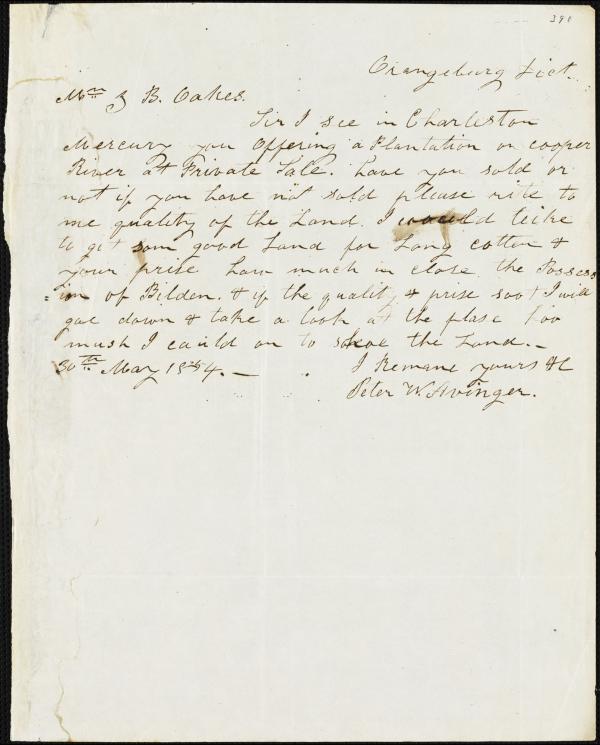 390
Orangeburg Dist.
Mr. Z B. Oakes.
Sir I see in Charleston
Mercury you Offering a Plantation on cooper
River at Private Sale. have you sold or
not if you have not sold please rite to
me quality of the Land. I would like
to git som good Land for Long cotton &
your prise how much in close the Possess
in of Bilden. & if the quality & prise soot I will
goe down & take a look at the plase hoo
mush I could on to the Land. —
30th May 1854. —
I Remane yours &C
Peter W. Avinger.